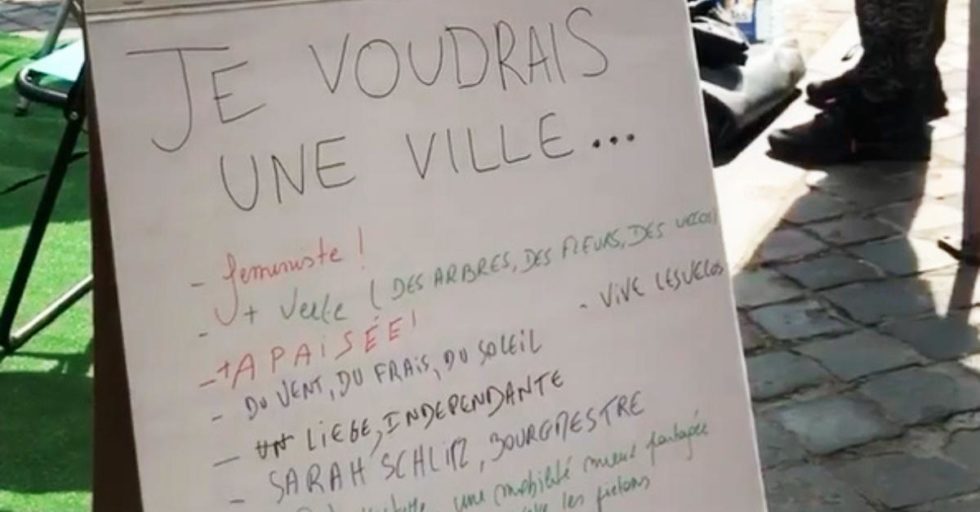 JE VOUDRAIS
UNE VILLE...
- feministe !
- + verte ( DES ARBRES, DES FLEURS, DES VELOS)
- VIVE LES VELOS
- + APAISÉE !
- DU VENT, DU FRAIS, DU SOLEIL
- LIEGE, INDEPENDANTE
- SARAH SCHLITZ, BOURGMESTRE
une mobilité mieux partagée
les pietons